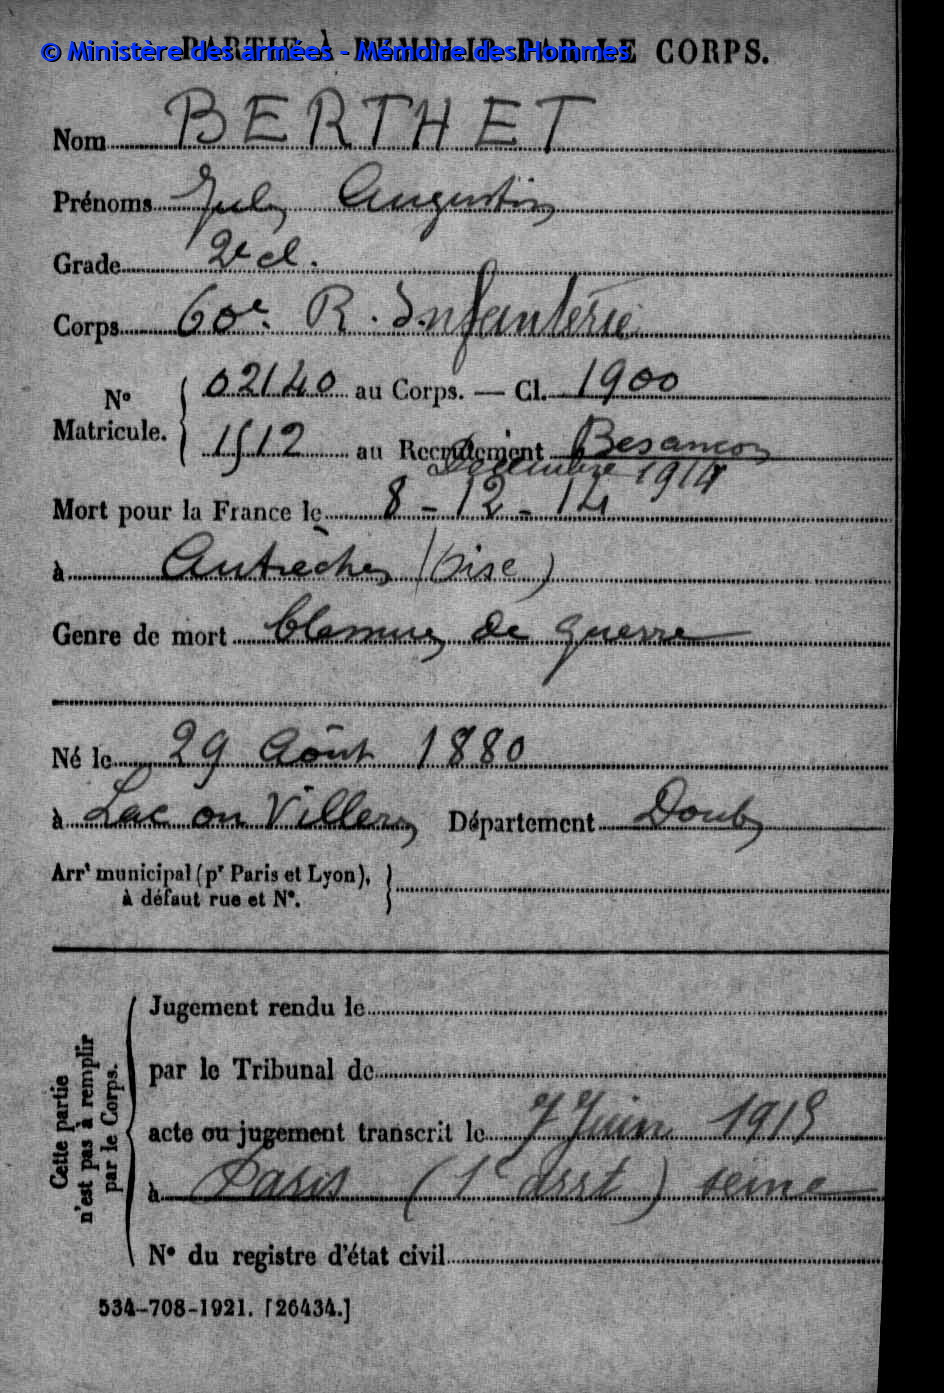 PARTIE À REMPLIR PAR LE CORPS.
© Ministère des armées - Mémoire des Hommes
Nom BERTHET
Prénoms Jules Augustin
Grade 2e cl.
Corps 60e R. Infanterie
No Matricule. { 02140 au Corps. — Cl. 1900
1512 au Recrutement Besançon
Décembre 1914
Mort pour la France le 8 - 12 - 14
à Autrèches (Oise)
Genre de mort blessures de guerre
Né le 29 Août 1880
à Lac ou Villers Département Doubs
Arrt municipal (pr Paris et Lyon),
à défaut rue et No.
Cette partie n'est pas à remplir par le Corps.
Jugement rendu le
par le Tribunal de
acte ou jugement transcrit le 7 Juin 1915
à Paris (1e arrt) Seine
No du registre d'état civil
534-708-1921. [26434.]